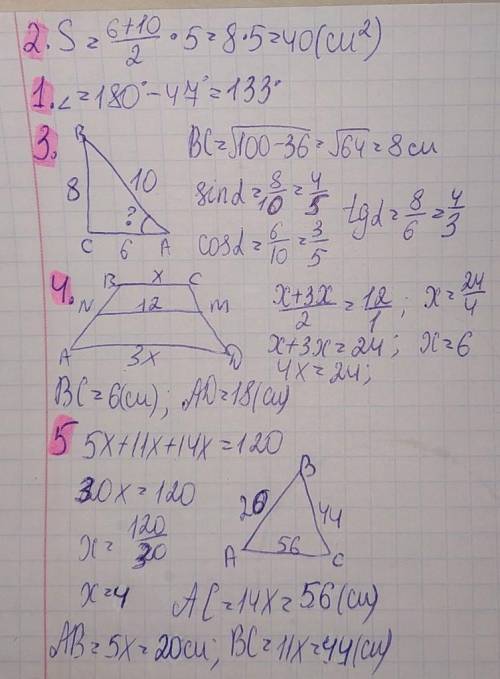 2. S = (6+10)/2 · 5 = 8 · 5 = 40 (см²)
1. ∠ = 180° - 47° = 133°
3. B
8 10
?
C 6 A
BC = √100-36 = √64 = 8 см
sin α = 8/10 = 4/5
tg α = 8/6 = 4/3
cos α = 6/10 = 3/5
4. B x C
N 12 M
A 3x D
(x+3x)/2 = 12/1 ; x = 24/4
x+3x = 24 ; x = 6
4x = 24 ;
BC = 6 (см) ; AD = 18 (см)
5 5x+11x+14x = 120
30x = 120
x = 120/30
x = 4
B
20 44
A 56 C
AC = 14x = 56 (см)
AB = 5x = 20 см ; BC = 11x = 44 (см)